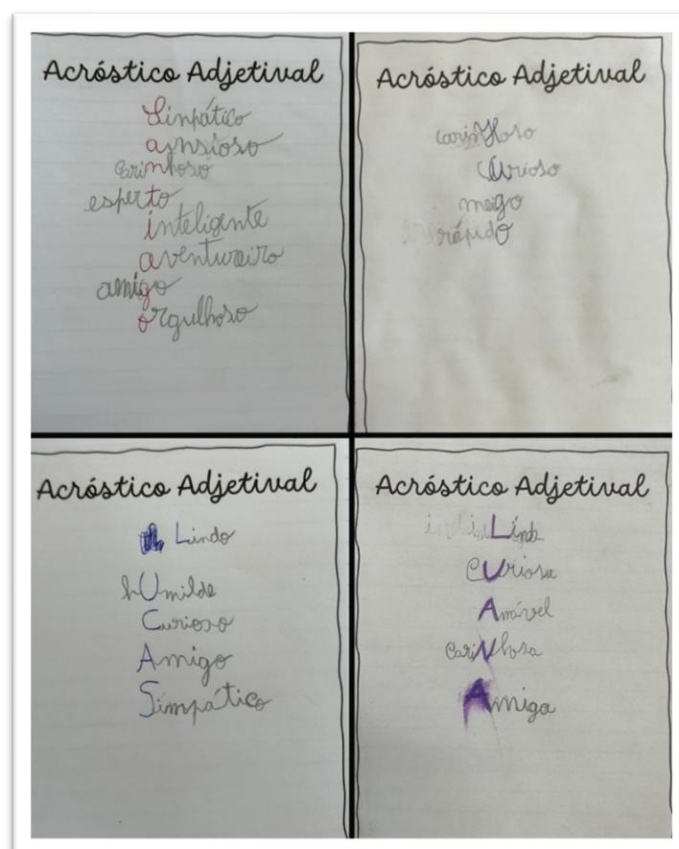 Acróstico Adjetival
Simpático
carinhoso
esperto
inteligente
aventureiro
amigo
orgulhoso
Acróstico Adjetival
carinHoso
cUrioso
meigo
rápidO
Acróstico Adjetival
Lindo
hUmilde
Curioso
Amigo
Simpático
Acróstico Adjetival
Linda
cUriosa
Amável
cariNhosa
Amiga